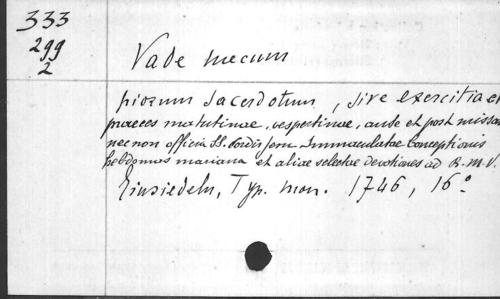 333
299
2
Vade mecum
piorum sacerdotum, sive exercitia et
praeces matutinae, vespertinae, ante et post missam
nec non officia SS. Cordis Jesu Immaculatae Conceptionis
hebdomas mariana et aliae selectae devotiones ad B. M. V.
Einsiedeln, Typ. mon. 1746, 16°